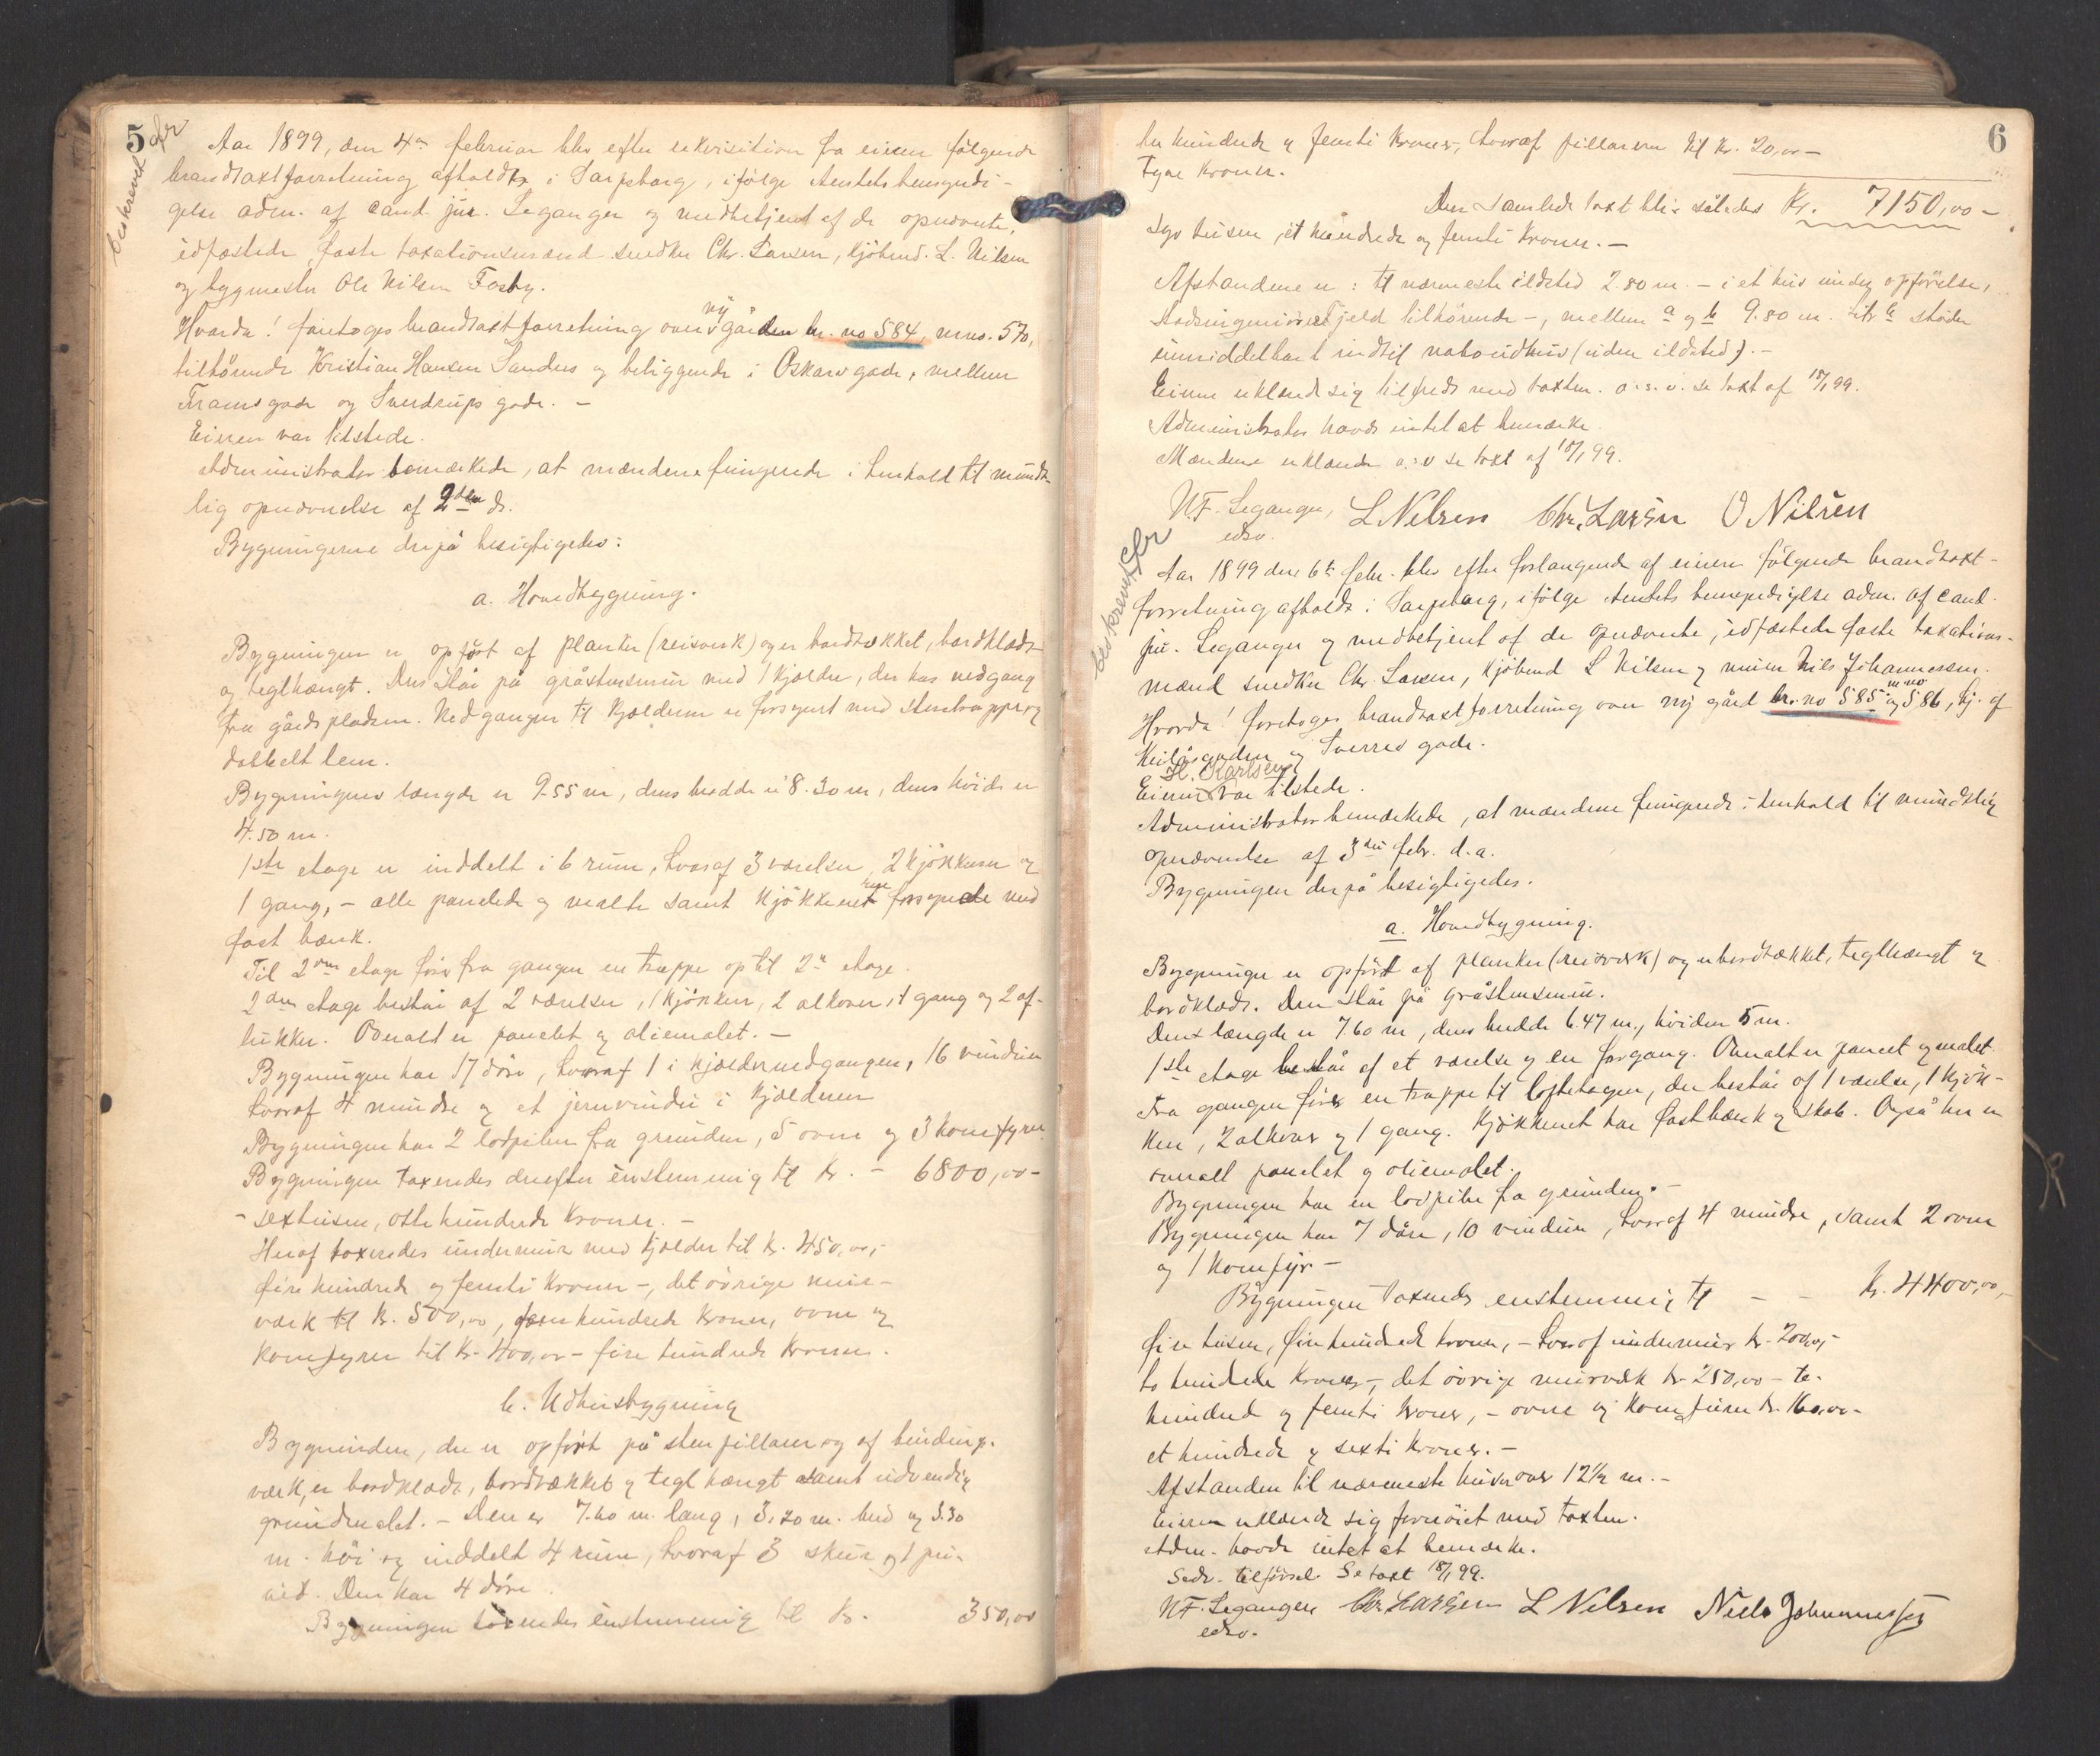 5
beskrevet
Aar 1899, den 4de februar blev efter rekvisition fra eieren følgende
brandtaxtforretning afholdt i Sarpsborg, ifølge Amtets bemyndi-
gelse adm. af cand. jur. Leganger og medbetjent af de opnævnte,
edfæstede, faste taxationsmænd snedker Chr. Larsen, kjøbmd. L. Nilsen
og bygmester Ole Nilsen Fosby.
Hvorda! foretoges brandtaxtforretning over ny gården br. no 584, mno. 570,
tilhørende Kristian Hansen Sandus og beliggende i Oskars gade, mellem
Frams gade og Sverdrups gade. –
Eieren var tilstede.
Administrator bemærkede, at mændene fungerede i henhold til mundt-
lig opnævnelse af 2den ds.
Bygningerne derpå besigtigedes:
a. Hovedbygning.
Bygningen er opført af planker (reisværk) og er bordtækket, bordklædt
og teglhængt. Den står på gråstensmur med 1 kjelder, der har nedgang
fra gårdspladsen. Nedgangen til kjelderen er forsynet med stentrapper og
dobbelt lem.
Bygningens længde er 9.55 m, dens bredde er 8.30 m, dens høide er
4.50 m.
1ste etage er inddelt i 6 rum, hvoraf 3 værelser, 2 kjøkkener og
1 gang, – alle panelede og malte samt kjøkkenerne forsynede med
fast bænk.
Til 2den etage fører fra gangen en trappe op til 2den etage.
2den etage består af 2 værelser, 1 kjøkken, 2 alkover, 1 gang og 2 af-
lukker. Overalt er panelet og oliemalet. –
Bygningen har 17 døre, hvoraf 1 i kjeldernedgangen, 16 vinduer
hvoraf 4 mindre og et jernvindu i kjelderen
Bygningen har 2 lodpiber fra grunden, 5 ovne og 3 komfyrer
Bygningen taxeredes derefter enstemmig til kr. – 6800,00 –
– sextusen, otte hundrede kroner. –
Heraf taxeredes undermur med kjelder til kr. 450,00,
fire hundrede og femti kroner –, det øvrige mur-
værk til kr. 500,00, fem hundrede kroner, ovne og
komfyrer til kr. 400,00 – fire hundrede kroner.
b. Udhusbygning
Bygningen, der er opført på stenpillarer og af bindings-
værk, er bordklædt, bordtækket og teglhængt samt udvendig
grundmalet. – Den er 7.60 m. lang, 3,20 m. bred og 3.30
m. høi og inddelt 4 rum, hvoraf 3 skur og 1 pri-
vet. Den har 4 døre.
Bygningen taxeredes enstemmig til kr. 350,00
6
tre hundrede og femti kroner, hvoraf pillarerne til kr. 20,00 –
tyve kroner.
Den samlede taxt blir således Kr. 7150,00 –
syv tusen, et hundrede og femti kroner. –
Afstandene er: til nærmeste ildsted 2.80 m. – i et hus under opførelse,
stadsingeniør Fjeld tilhørende –, mellem a og b 9.80 m. litr b støder
umiddelbart indtil nabouthus (uden ildsted). –
Eieren erklærede sig tilfreds med taxten. o. s. v. se taxt af 18/1 99.
Administrator havde intet at bemærke.
Mændene erklærede o.s.v se taxt af 18/1 99.
N.F. Leganger, L Nilsen Chr. Larsen O Nilsen
edsv.
beskrevet
Aar 1899 den 6te febr. blev efter forlangende af eieren følgende brandtaxt-
forretning afholdt i Sarpsborg, ifølge Amtets bemyndigelse adm. af cand.
jur. Leganger og medbetjent af de opnævnte, edfæstede faste taxations-
mænd snedker Chr. Larsen, kjøbmd L Nilsen og murer Nils Johannessen.
Hvorda! foretoges brandtaxtforretning over ny gård br. no 585 m no og 586, hj. af
og Sverres gade.
H. Karlsen
Eieren var tilstede.
Administrator bemærkede, at mændene fungerede i henhold til mundtlig
opnævnelse af 3die febr. d.a.
Bygningen derpå besigtigedes.
a. Hovedbygning.
Bygningen er opført af planker (reisværk) og er bordtækket, teglhængt og
bordklædt. Den står på gråstensmur.
Dens længde er 7.60 m, dens bredde 6.47 m., høiden 5 m.
1ste etage består af et værelse og en forgang. Overalt er panelet og malet.
Fra gangen fører en trappe til loftetagen, der består af 1 værelse, 1 kjøk-
ken, 2 alkover og 1 gang. Kjøkkenet har fast bænk og skab. Også her er
overalt panelet og oliemalet.
Bygningen har en lodpibe fra grunden. –
Bygningen har 7 døre, 10 vinduer, hvoraf 4 mindre, samt 2 ovne
og 1 komfyr –
Bygningen taxeredes enstemmig til – – kr. 4400,00,
fire tusen, fire hundrede kroner, – hvoraf undermur kr. 200,00, –
to hundrede kroner –, det øvrige murværk kr. 250,00 – to
hundred og femti kroner, – ovne og komfuren kr. 160,00 –
et hundrede og sexti kroner. –
Afstanden til nærmeste hus er over 12½ m. –
Eieren erklærede sig fornøiet med taxten.
Adm. havde intet at bemærke.
Sedv. tilførsel. Se taxt 18/1 99.
N.F. Leganger Chr Larsen L Nilsen Niels Johannessen
edsv.